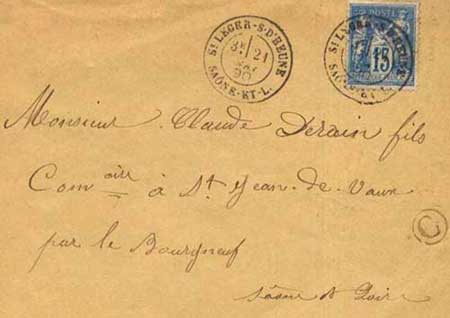 St LEGER-S-D'HEUNE
3E 21
90
SAÔNE-ET-L.
15
St LEGER-S-D'HEUNE
SAÔNE-ET-L.
Monsieur Claude Derain fils
Com aire à St Jean-de-Vaux
par le Bourgneuf
Saône et Loire
C